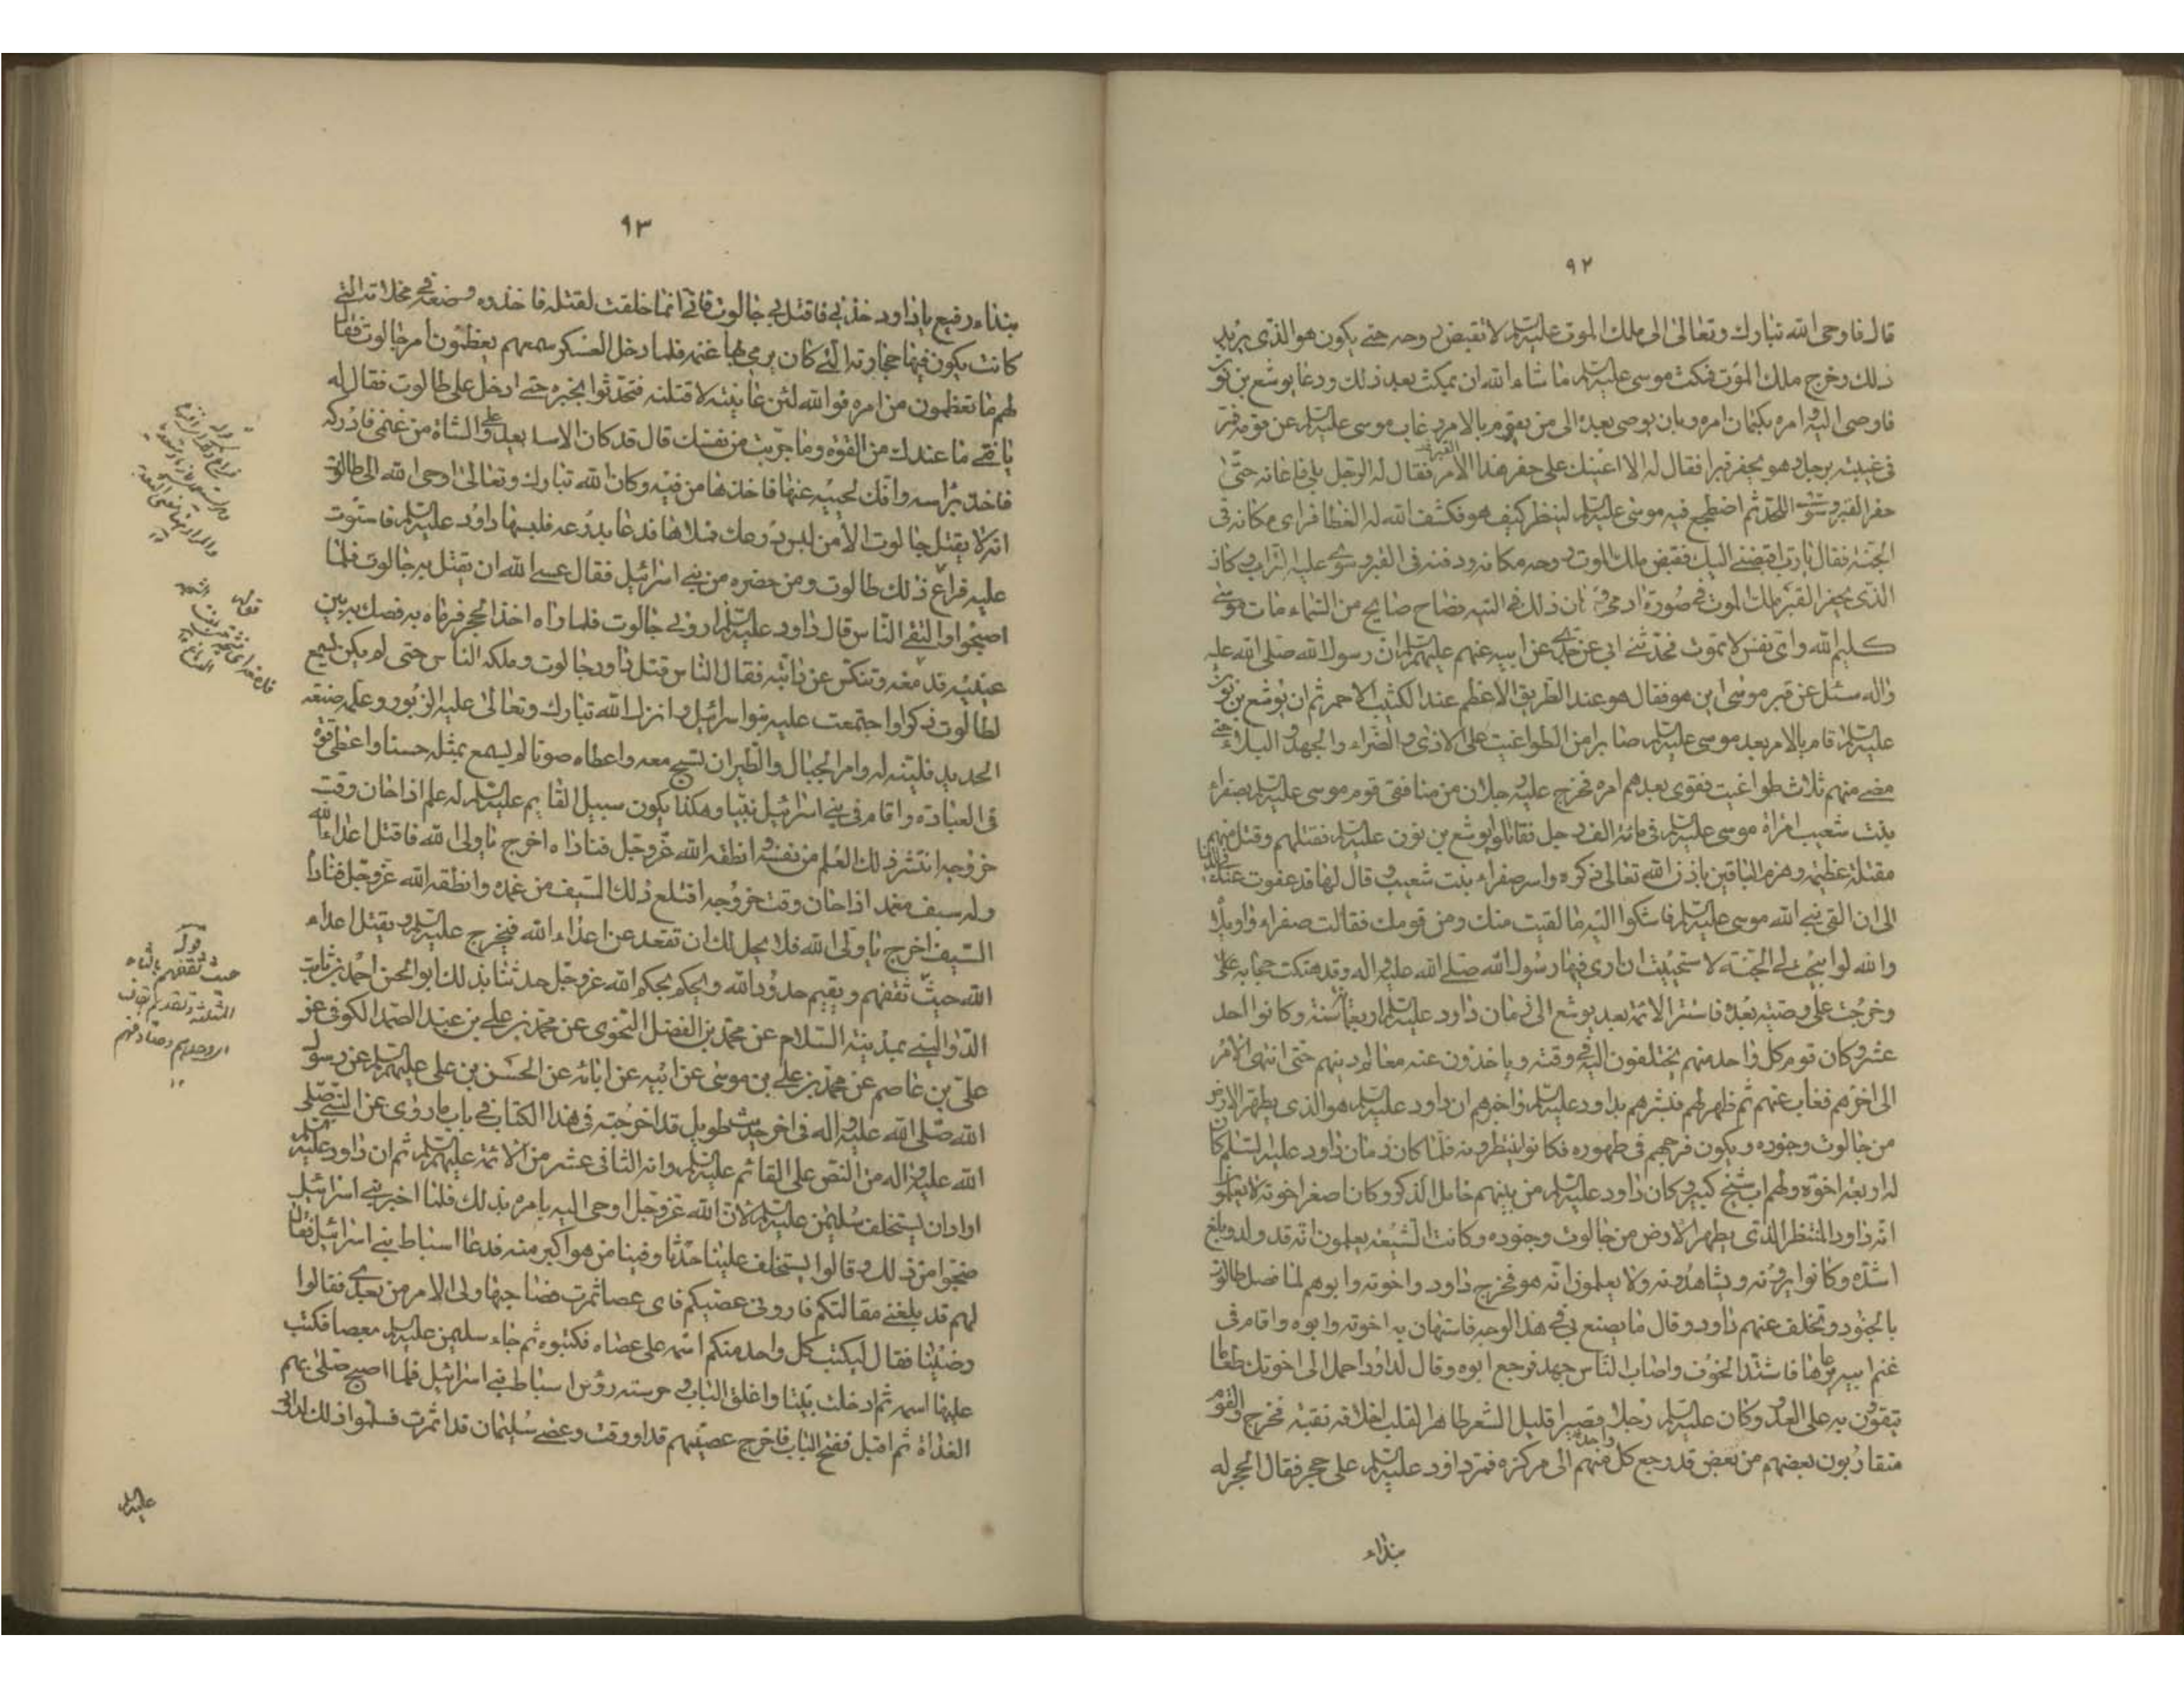 ٩٢
قال فاوحى الله تبارك وتعالى الى ملك الموت عليه السلم لا تقبض روحه حتى يكون هو الذى يريد
ذلك وخرج ملك الموت فمكث موسى عليه السلم ما شاء الله ان يمكث بعد ذلك ودعا يوشع بن نون
فاوصى اليه وامره بكتمان امره وبان يوصى بعده الى من يقوم بالامر وغاب موسى عليه السلم عن قومه فمر
فى غيبته برجل وهو يحفر قبرا فقال له الا اعينك على حفر هذا القبر فقال له الرجل بلى فاعانه حتى
حفر القبر وسوى اللحد ثم اضطجع فيه موسى عليه السلم لينظر كيف هو فكشف الله له الغطا فراى مكانه فى
الجنة فقال يا رب اقبضنى اليك فقبض ملك الموت روحه مكانه ودفنه فى القبر وسوى عليه التراب وكان
الذى يحفر القبر ملك الموت فى صورة ادمى وكان ذلك فى التيه فصاح صايح من السماء مات موسى
كليم الله واى نفس لا تموت فحدثنى ابى عن جدى عن ابيه عنهم عليهم السلم ان رسول الله صلى الله عليه
واله سئل عن قبر موسى اين هو فقال هو عند الطريق الاعظم عند الكثيب الاحمر ثم ان يوشع بن نون
عليه السلم قام بالامر بعد موسى عليه السلم صابرا من الطواغيت على الاذى والضراء والجهد والبلاء حتى
مضى منهم ثلاث طواغيت فقوى بعدهم امره فخرج عليه رجلان من منافقى قوم موسى عليه السلم بصفراء
بنت شعيب امراة موسى عليه السلم فى مائة الف رجل فقاتلوا يوشع بن نون عليه السلم فقتلهم وقتل منهم
مقتلة عظيمة وهزم الباقين باذن الله تعالى ذكره واسر صفراء بنت شعيب وقال لها قد عفوت عنك فى الدنيا
الى ان القى نبى الله موسى عليه السلم فاشكوا اليه ما لقيت منك ومن قومك فقالت صفراء واويلاه
والله لو ابيحت لى الجنة لاستحييت ان ارى فيها رسول الله صلى الله عليه واله وقد هتكت حجابه على
وخرجت على وصيه بعده فاستتر الائمة بعد يوشع الى زمان داود عليه السلم اربعمائة سنة وكانوا احد
عشر وكان قوم كل واحد منهم يختلفون اليه فى وقته وياخذون عنه معالم دينهم حتى انتهى الامر
الى اخرهم فغاب عنهم ثم ظهر لهم فبشرهم بداود عليه السلم واخبرهم ان داود عليه السلم هو الذى يطهر الارض
من جالوت وجنوده ويكون فرجهم فى ظهوره فكانوا ينتظرونه فلما كان زمان داود عليه السلم كان
له اربعة اخوة ولهم اب شيخ كبير وكان داود عليه السلم من بينهم خامل الذكر وكان اصغر اخوته لا يعلمون
انه داود المنتظر الذى يطهر الارض من جالوت وجنوده وكانت الشيعة يعلمون انه قد ولد وبلغ
اشده وكانوا يرونه ويشاهدونه ولا يعلمون انه هو فخرج داود واخوته وابوهم لما فصل طالوت
بالجنود وتخلف عنهم داود وقال ما يصنع بى فى هذا الوجه فاستهان به اخوته وابوه واقام فى
غنم ابيه يرعاها فاشتد الخوف واصاب الناس جهد فرجع ابوه وقال لداود احمل الى اخوتك طعاما
يتقوون به على العدو وكان عليه السلم رجلا قصيرا قليل الشعر طاهر القلب اخلاقه نقية فخرج والقوم
متقاربون بعضهم من بعض قد رجع كل واحد منهم الى مركزه فمر داود عليه السلم على حجر فقال الحجر له
بنداء
٩٣
بنداء رفيع يا داود خذنى فاقتل بى جالوت فانى انما خلقت لقتله فاخذه ووضعه فى مخلاته التى
كانت يكون فيها حجارته التى كان يرمى بها غنمه فلما دخل العسكر سمعهم يعظمون امر جالوت فقال
لهم ما تعظمون من امره فوالله لئن عاينته لاقتلنه فتحدثوا بخبره حتى ادخل على طالوت فقال له
يا فتى ما عندك من القوة وما جربت من نفسك قال قد كان الاسد يعدو على الشاة من غنمى فادركه
فاخذ براسه وافك لحييه عنها فاخذها من فيه وكان الله تبارك وتعالى اوحى الله الى طالوت
انه لا يقتل جالوت الا من لبس درعك فملاها فدعا بدرعه فلبسها داود عليه السلم فاستوت
عليه فراع ذلك طالوت ومن حضره من بنى اسرائيل فقال عسى الله ان يقتل به جالوت فلما
اصبحوا والتقى الناس قال داود عليه السلم ارونى جالوت فلما راه اخذ الحجر فرماه به فصك به بين
عينيه فدمغه وتنكس عن دابته فقال الناس قتل داود جالوت وملكه الناس حتى لم يكن يسمع
لطالوت ذكر واجتمعت عليه بنوا اسرائيل وانزل الله تبارك وتعالى عليه الزبور وعلمه صنعة
الحديد فلينه له وامر الجبال والطير ان تسبح معه واعطاه صوتا لم يسمع بمثله حسنا واعطى قوة
فى العبادة واقام فى بنى اسرائيل نبيا وهكذا يكون سبيل القايم عليه السلم له علم اذا حان وقت
خروجه انتشر ذلك العلم من نفسه وانطقه الله عز وجل فناداه اخرج يا ولى الله فاقتل اعداء الله
وله سيف مغمد اذا حان وقت خروجه اقتلع ذلك السيف من غمده وانطقه الله عز وجل فناداه
السيف اخرج يا ولى الله فلا يحل لك ان تقعد عن اعداء الله فيخرج عليه السلم ويقتل اعداء
الله حيث ثقفهم ويقيم حدود الله ويحكم بحكم الله عز وجل حدثنا بذلك ابو الحسن احمد بن ثابت
الدواليبى بمدينة السلام عن محمد بن الفضل النحوى عن محمد بن على بن عبد الصمد الكوفى عن
على بن عاصم عن محمد بن على بن موسى عن ابيه عن ابائه عن الحسين بن على عليهم السلم عن رسول
الله صلى الله عليه واله فى اخر حديث طويل قد اخرجته فى هذا الكتاب فى باب ما روى عن النبى صلى
الله عليه واله من النص على القائم عليه السلم وانه الثانى عشر من الائمة عليهم السلم ثم ان داود عليه السلم
اراد ان يستخلف سليمن عليه السلم لان الله عز وجل اوحى اليه يامره بذلك فلما اخبر بنى اسرائيل
ضجوا من ذلك وقالوا يستخلف علينا حدثا وفينا من هو اكبر منه فدعا اسباط بنى اسرائيل فقال
لهم قد بلغنى مقالتكم فارونى عصيكم فاى عصا اثمرت فصاحبها ولى الامر من بعدى فقالوا
رضينا فقال ليكتب كل واحد منكم اسمه على عصاه فكتبوه ثم جاء سليمن عليه السلم بعصا فكتب
عليها اسمه ثم ادخلت بيتا واغلق الباب وحرسته رؤس اسباط بنى اسرائيل فلما اصبح صلى بهم
الغداة ثم اقبل ففتح الباب فاخرج عصيهم قد اورقت وعصى سليمان قد اثمرت فسلموا ذلك لداود
قوله
حيث ثقفهم بالثاء
المثلثة وتقديم القاف
اى وجدهم وصادفهم
١٢
عليه السلم